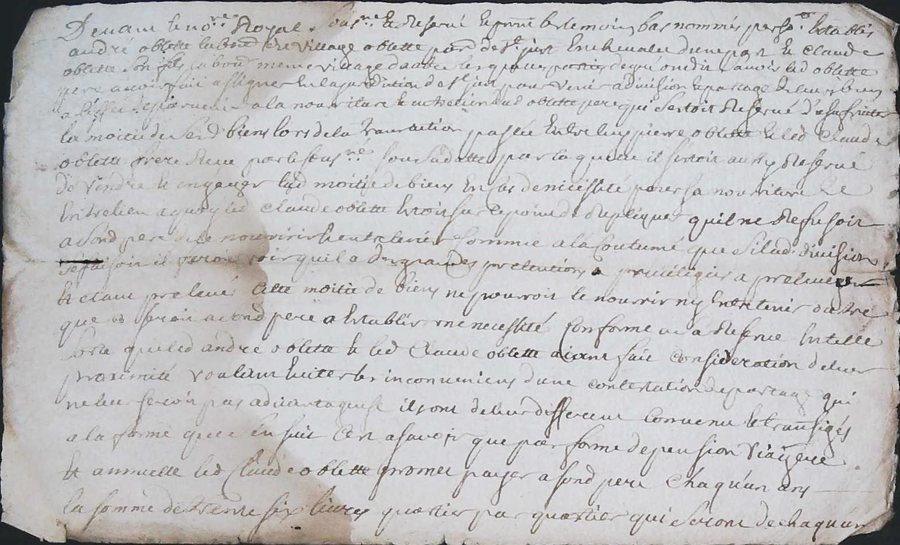 Devant le nore Royal sousne Reservé et presents les temoins bas nommés perso etablis
andré oblette laboureur du village oblette parr de st just en chevalet d'une part et Claude
oblette son fils labour meme village d'autre lesquelles parties led oblette
pere la juridiction de st just pour venir a division et partage de leurs biens
a la nourriture et entretien dud oblette pere qui s'estoit Reservé
la moitié de sesd biens lors de la transaction passée entre luy pierre oblette et led Claude
oblette frere Receue par le sousne par laquelle il s'estoit aussy Reservé
de vendre et engager lad moitié de biens en cas de necessité pour sa nouriture et
entretien a quoy led Claude oblette de Replique qu'il ne Refusoit
a sond pere de le nourir et entretenir comme a la coutume que si lad division
se faisoit il qu'il a de grandes pretentions et privileges a prelever
et etant prelevés cette moitié de biens ne pourroit le nourir ny entretenir outre
que sond pere a etablir une necessité conforme a la Reserve en telle
sorte que led andré oblette et led Claude oblette aiant fait consideration de leur
proximité voulant eviter les inconveniens d'une contestation de partage qui
ne leur seroit pas advantageuse ils ont de leur different convenu et transigés
a la forme que s'en suit C'est a scavoir que par forme de pension viagere
et annuelle led Claude oblette promet payer a sond pere chaqu'un ans
la somme de trente six livres quartier par quartier qui seront de chaqu'un